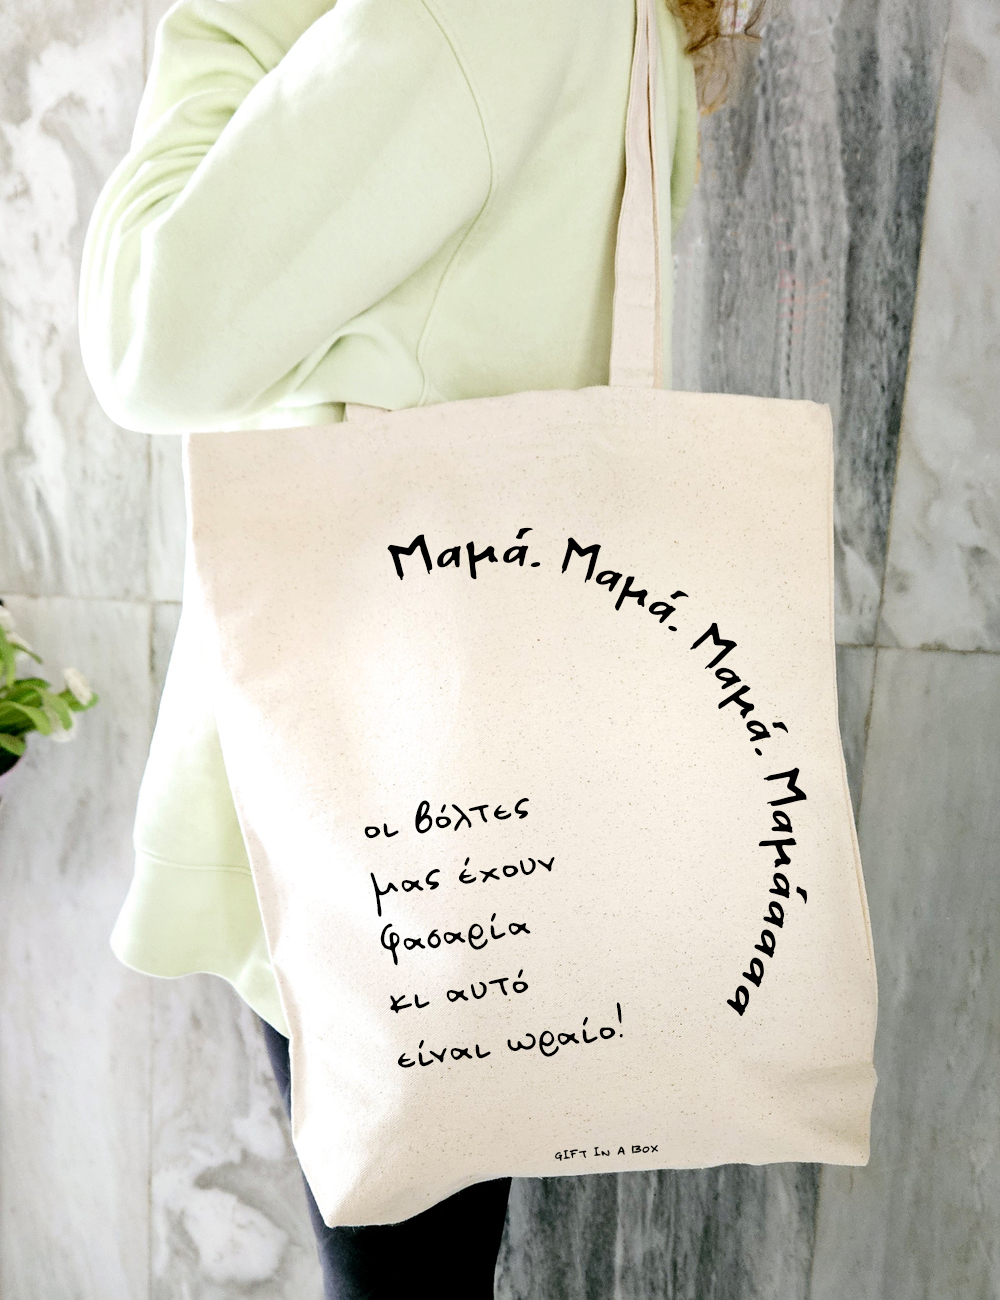 Μαμά. Μαμά. Μαμά. Μαμάαααα
οι βόλτες
μας έχουν
φασαρία
κι αυτό
είναι ωραίο!
GIFT IN A BOX